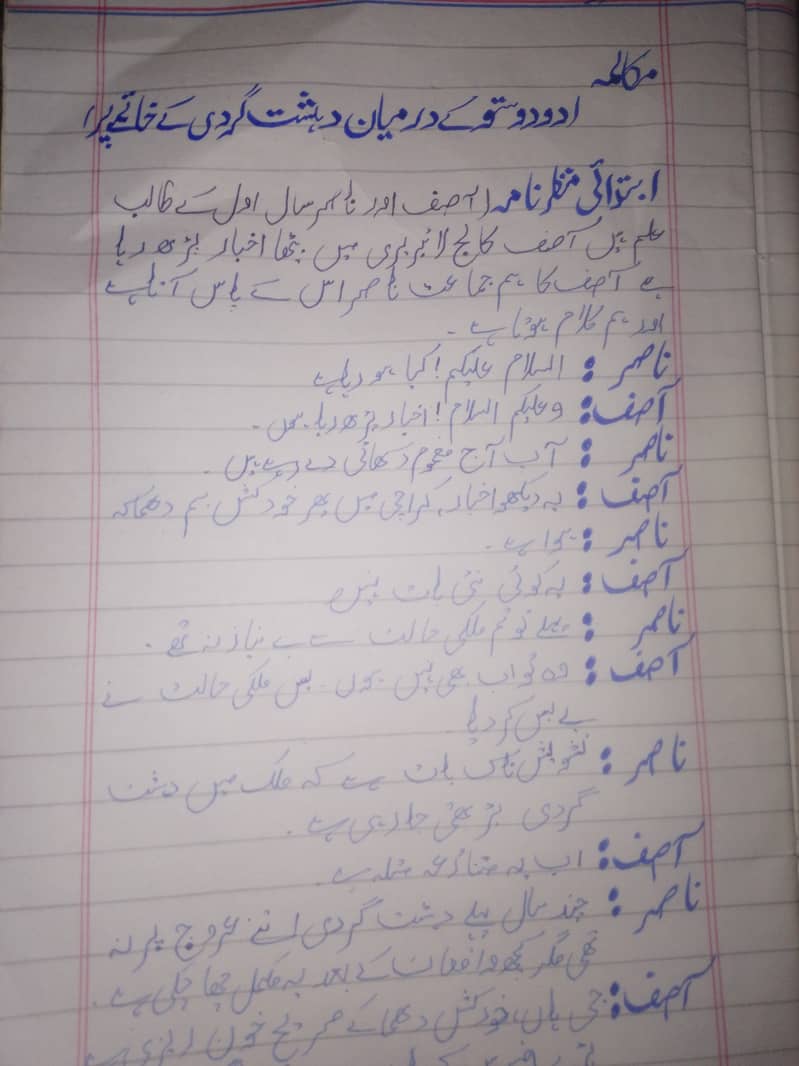 مکالمہ
(دو دوستو کے درمیان دہشت گردی کے خاتمے پر)
ابتدائی منظر نامہ (آصف اور ناصر سال اول کے طالب
علم ہیں آصف کالج لائبریری میں بیٹھا اخبار پڑھ رہا
ہے آصف کا ہم جماعت ناصر اس کے پاس آتا ہے
اور ہم کلام ہوتا ہے۔
ناصر : السلام علیکم! کیا ہو رہا ہے
آصف: وعلیکم السلام! اخبار پڑھ رہا ہوں۔
ناصر : آپ آج مغموم دکھائی دے رہے ہیں۔
آصف: یہ دیکھو اخبار کراچی میں پھر خودکش بم دھماکہ
ناصر : ہوا ہے۔
آصف: یہ کوئی نئی بات نہیں
ناصر : پہلے تو تم ملکی حالت سے بے نیاز نہ تھے۔
آصف: وہ تو اب بھی نہیں ہوں۔ بس ملکی حالت نے
بے بس کر دیا
ناصر : تشویش ناک بات ہے کہ ملک میں دہشت
گردی بڑھتی جا رہی ہے۔
آصف: اب یہ متنازعہ مسئلہ ہے۔
ناصر : چند سال پہلے دہشت گردی اتنے عروج پر نہ
تھی مگر کچھ واقعات کے بعد یہ مکمل چھا چکی ہے۔
آصف: جی ہاں، خودکش دھماکے صریح خون ریزی ہے